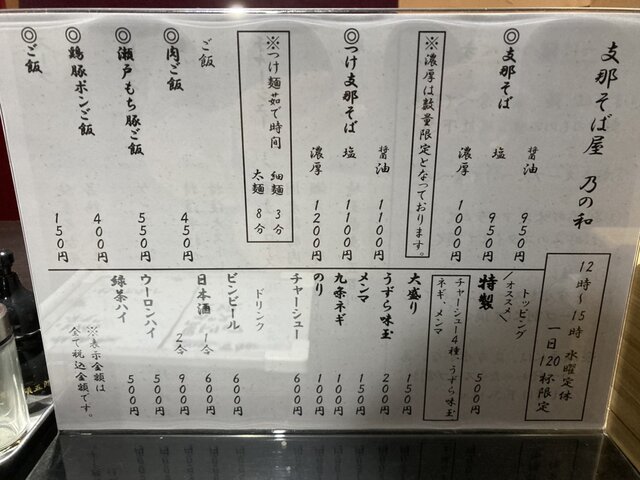 支那そば屋 乃の和
12時〜15時 水曜定休
一日120杯限定
◎支那そば
醤油 950円
塩 950円
濃厚 1000円
※濃厚は数量限定となっております。
◎つけ支那そば
醤油 1100円
塩 1100円
濃厚 1200円
※つけ麺茹で時間
細麺 3分
太麺 8分
ご飯
◎肉ご飯 450円
◎瀬戸もち豚ご飯 550円
◎鶏豚ポンご飯 400円
◎ご飯 150円
トッピング
\オススメ/
特製 500円
チャーシュー4種、うずら味玉
ネギ、メンマ
大盛り 150円
うずら味玉 200円
メンマ 150円
九条ネギ 100円
のり 100円
チャーシュー 600円
ドリンク
ビンビール 600円
日本酒 1合 600円
2合 900円
ウーロンハイ 500円
緑茶ハイ 500円
※表示金額は
全て税込金額です。